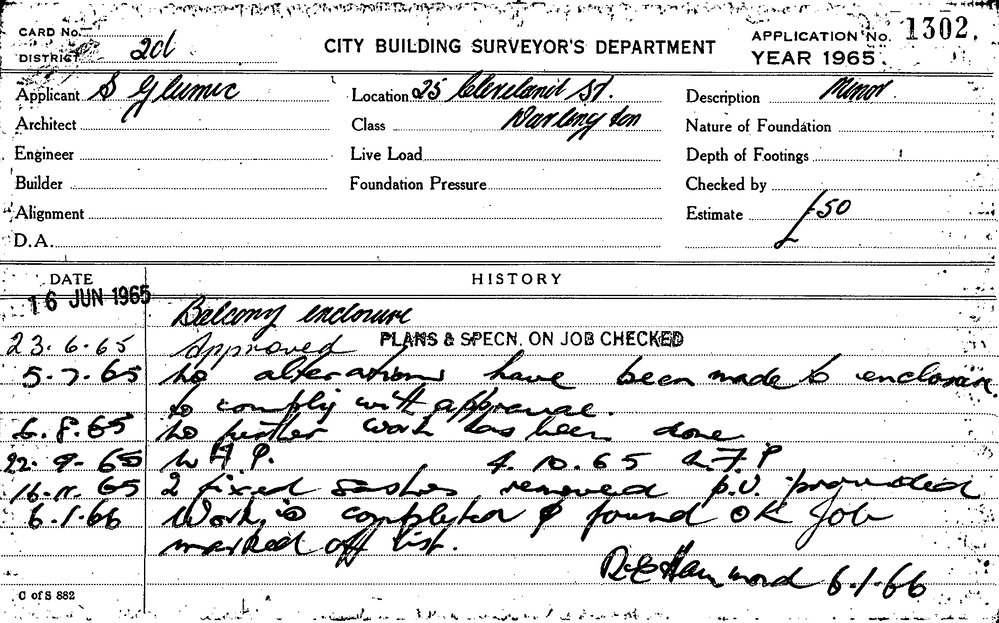 CARD No.
DISTRICT 2d
CITY BUILDING SURVEYOR'S DEPARTMENT
APPLICATION No. 1302.
YEAR 1965.
Applicant S Glumic Location 25 Cleveland St. Description Minor
Architect Class Darlington Nature of Foundation
Engineer Live Load Depth of Footings
Builder Foundation Pressure Checked by
Alignment Estimate £50
D.A.
DATE HISTORY
16 JUN 1965
Balcony enclosure
23.6.65 Approved PLANS & SPECN. ON JOB CHECKED
5.7.65 No alterations have been made to enclosure
to comply with approval.
6.8.65 No further work has been done
22.9.65 N.F.P. 4.10.65 N.F.P
16.11.65 2 fixed sashes removed p.v. provided
6.1.66 Work is completed & found OK Job
marked off list.
Hammond 6.1.66
C of S 882